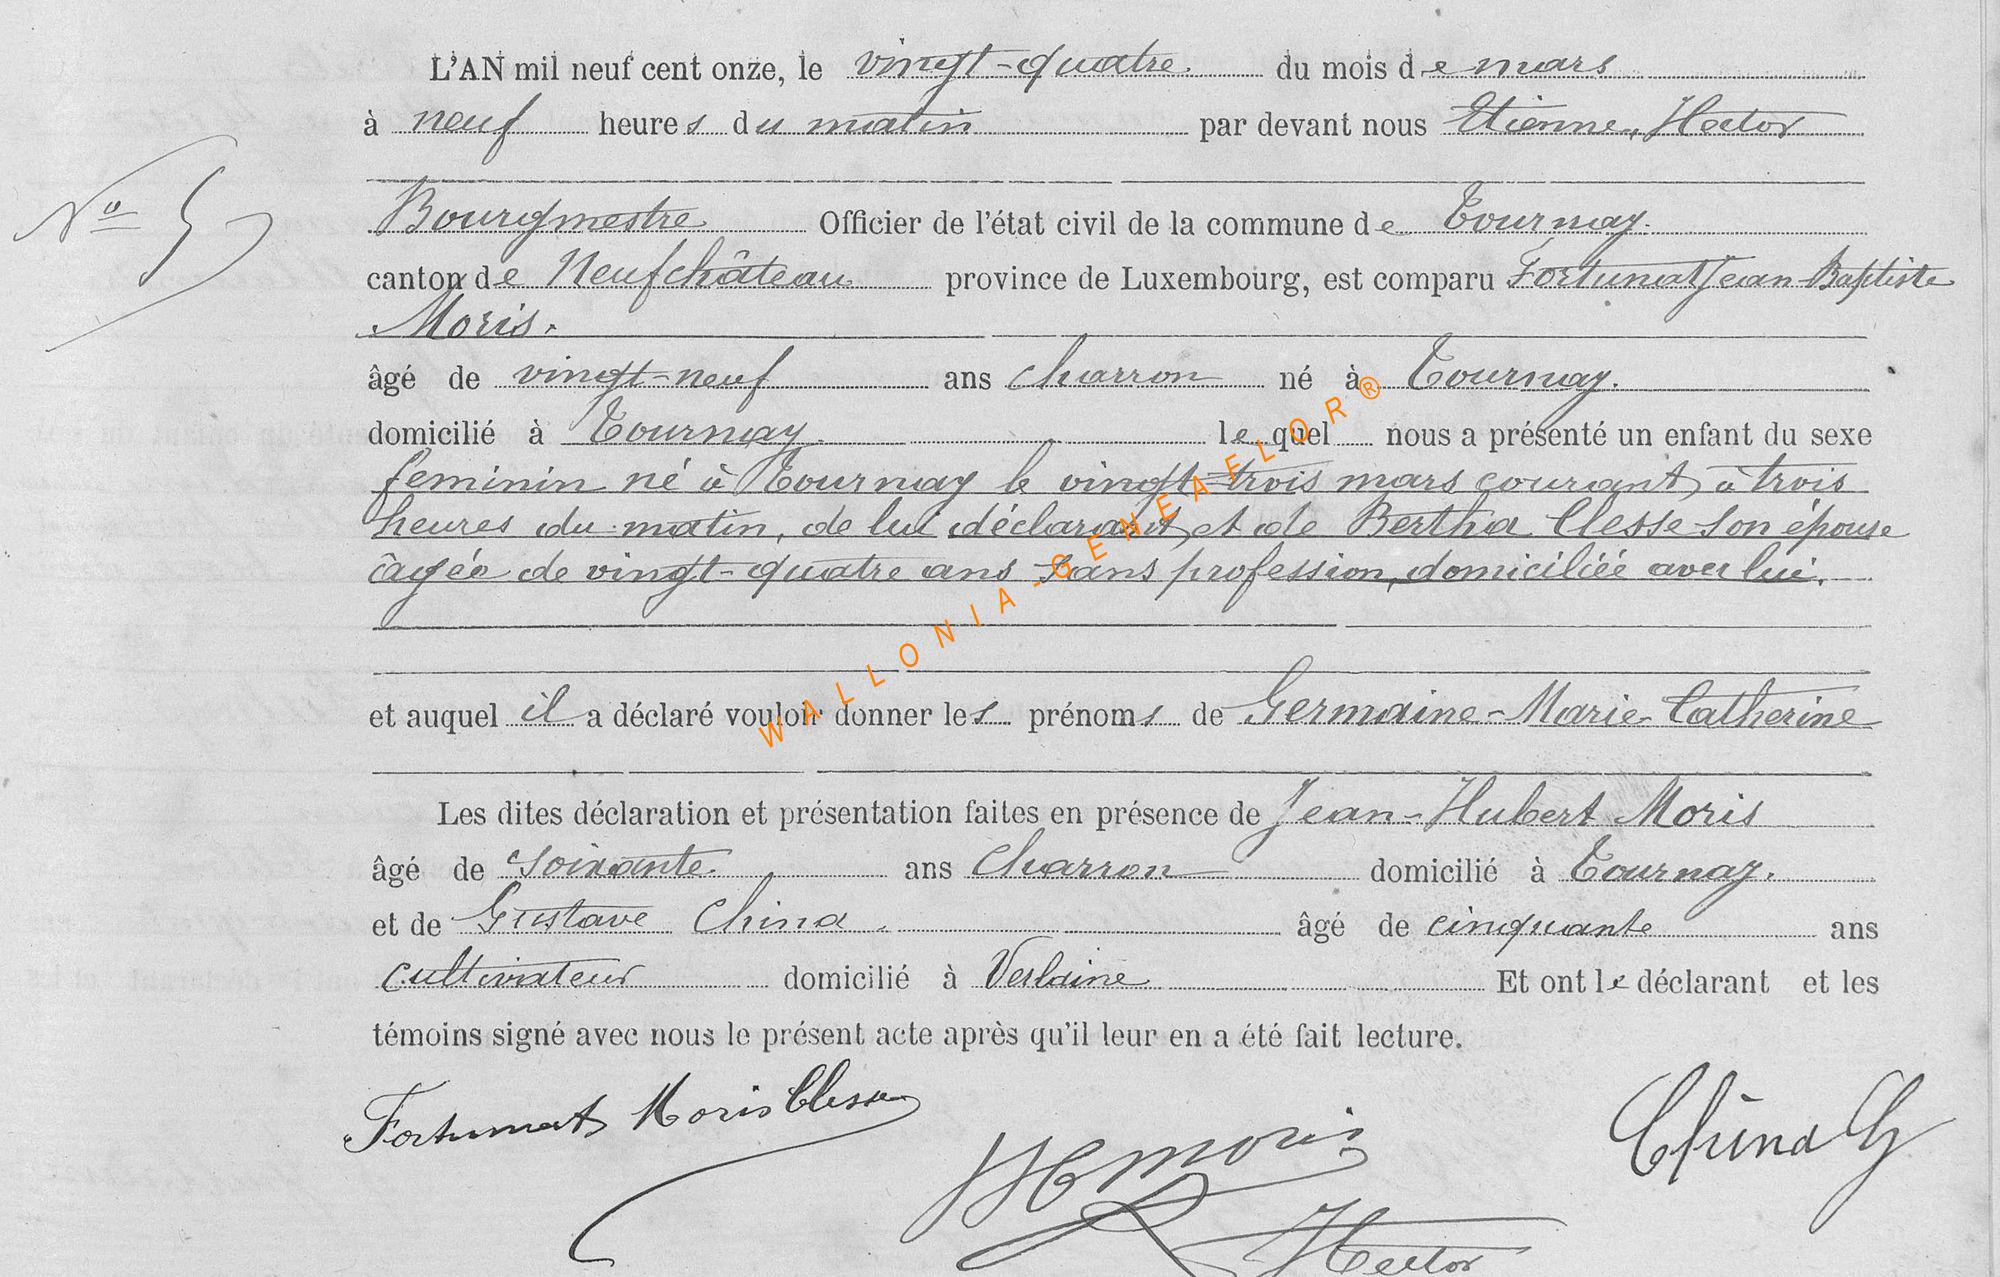 L'AN mil neuf cent onze, le vingt-quatre du mois de mars
à neuf heures du matin par devant nous Etienne, Hector
No 5
Bourgmestre Officier de l'état civil de la commune de Tournay.
canton de Neufchâteau province de Luxembourg, est comparu Fortunat Jean-Baptiste
Moris.
âgé de vingt-neuf ans charron né à Tournay.
domicilié à Tournay. lequel nous a présenté un enfant du sexe
feminin né à Tournay le vingt-trois mars courant, à trois
heures du matin, de lui déclarant, et de Bertha Clesse son épouse
âgée de vingt-quatre ans sans profession, domiciliée avec lui.
WALLONIA-GENEAELOR®
et auquel il a déclaré vouloir donner les prénoms de Germaine-Marie-Catherine
Les dites déclaration et présentation faites en présence de Jean-Hubert Moris
âgé de soixante ans charron domicilié à Tournay.
et de Gustave China. âgé de cinquante ans
cultivateur domicilié à Verlaine Et ont le déclarant et les
témoins signé avec nous le présent acte après qu'il leur en a été fait lecture.
Fortunat Moris Clesse
JH Moris
China G
Hector